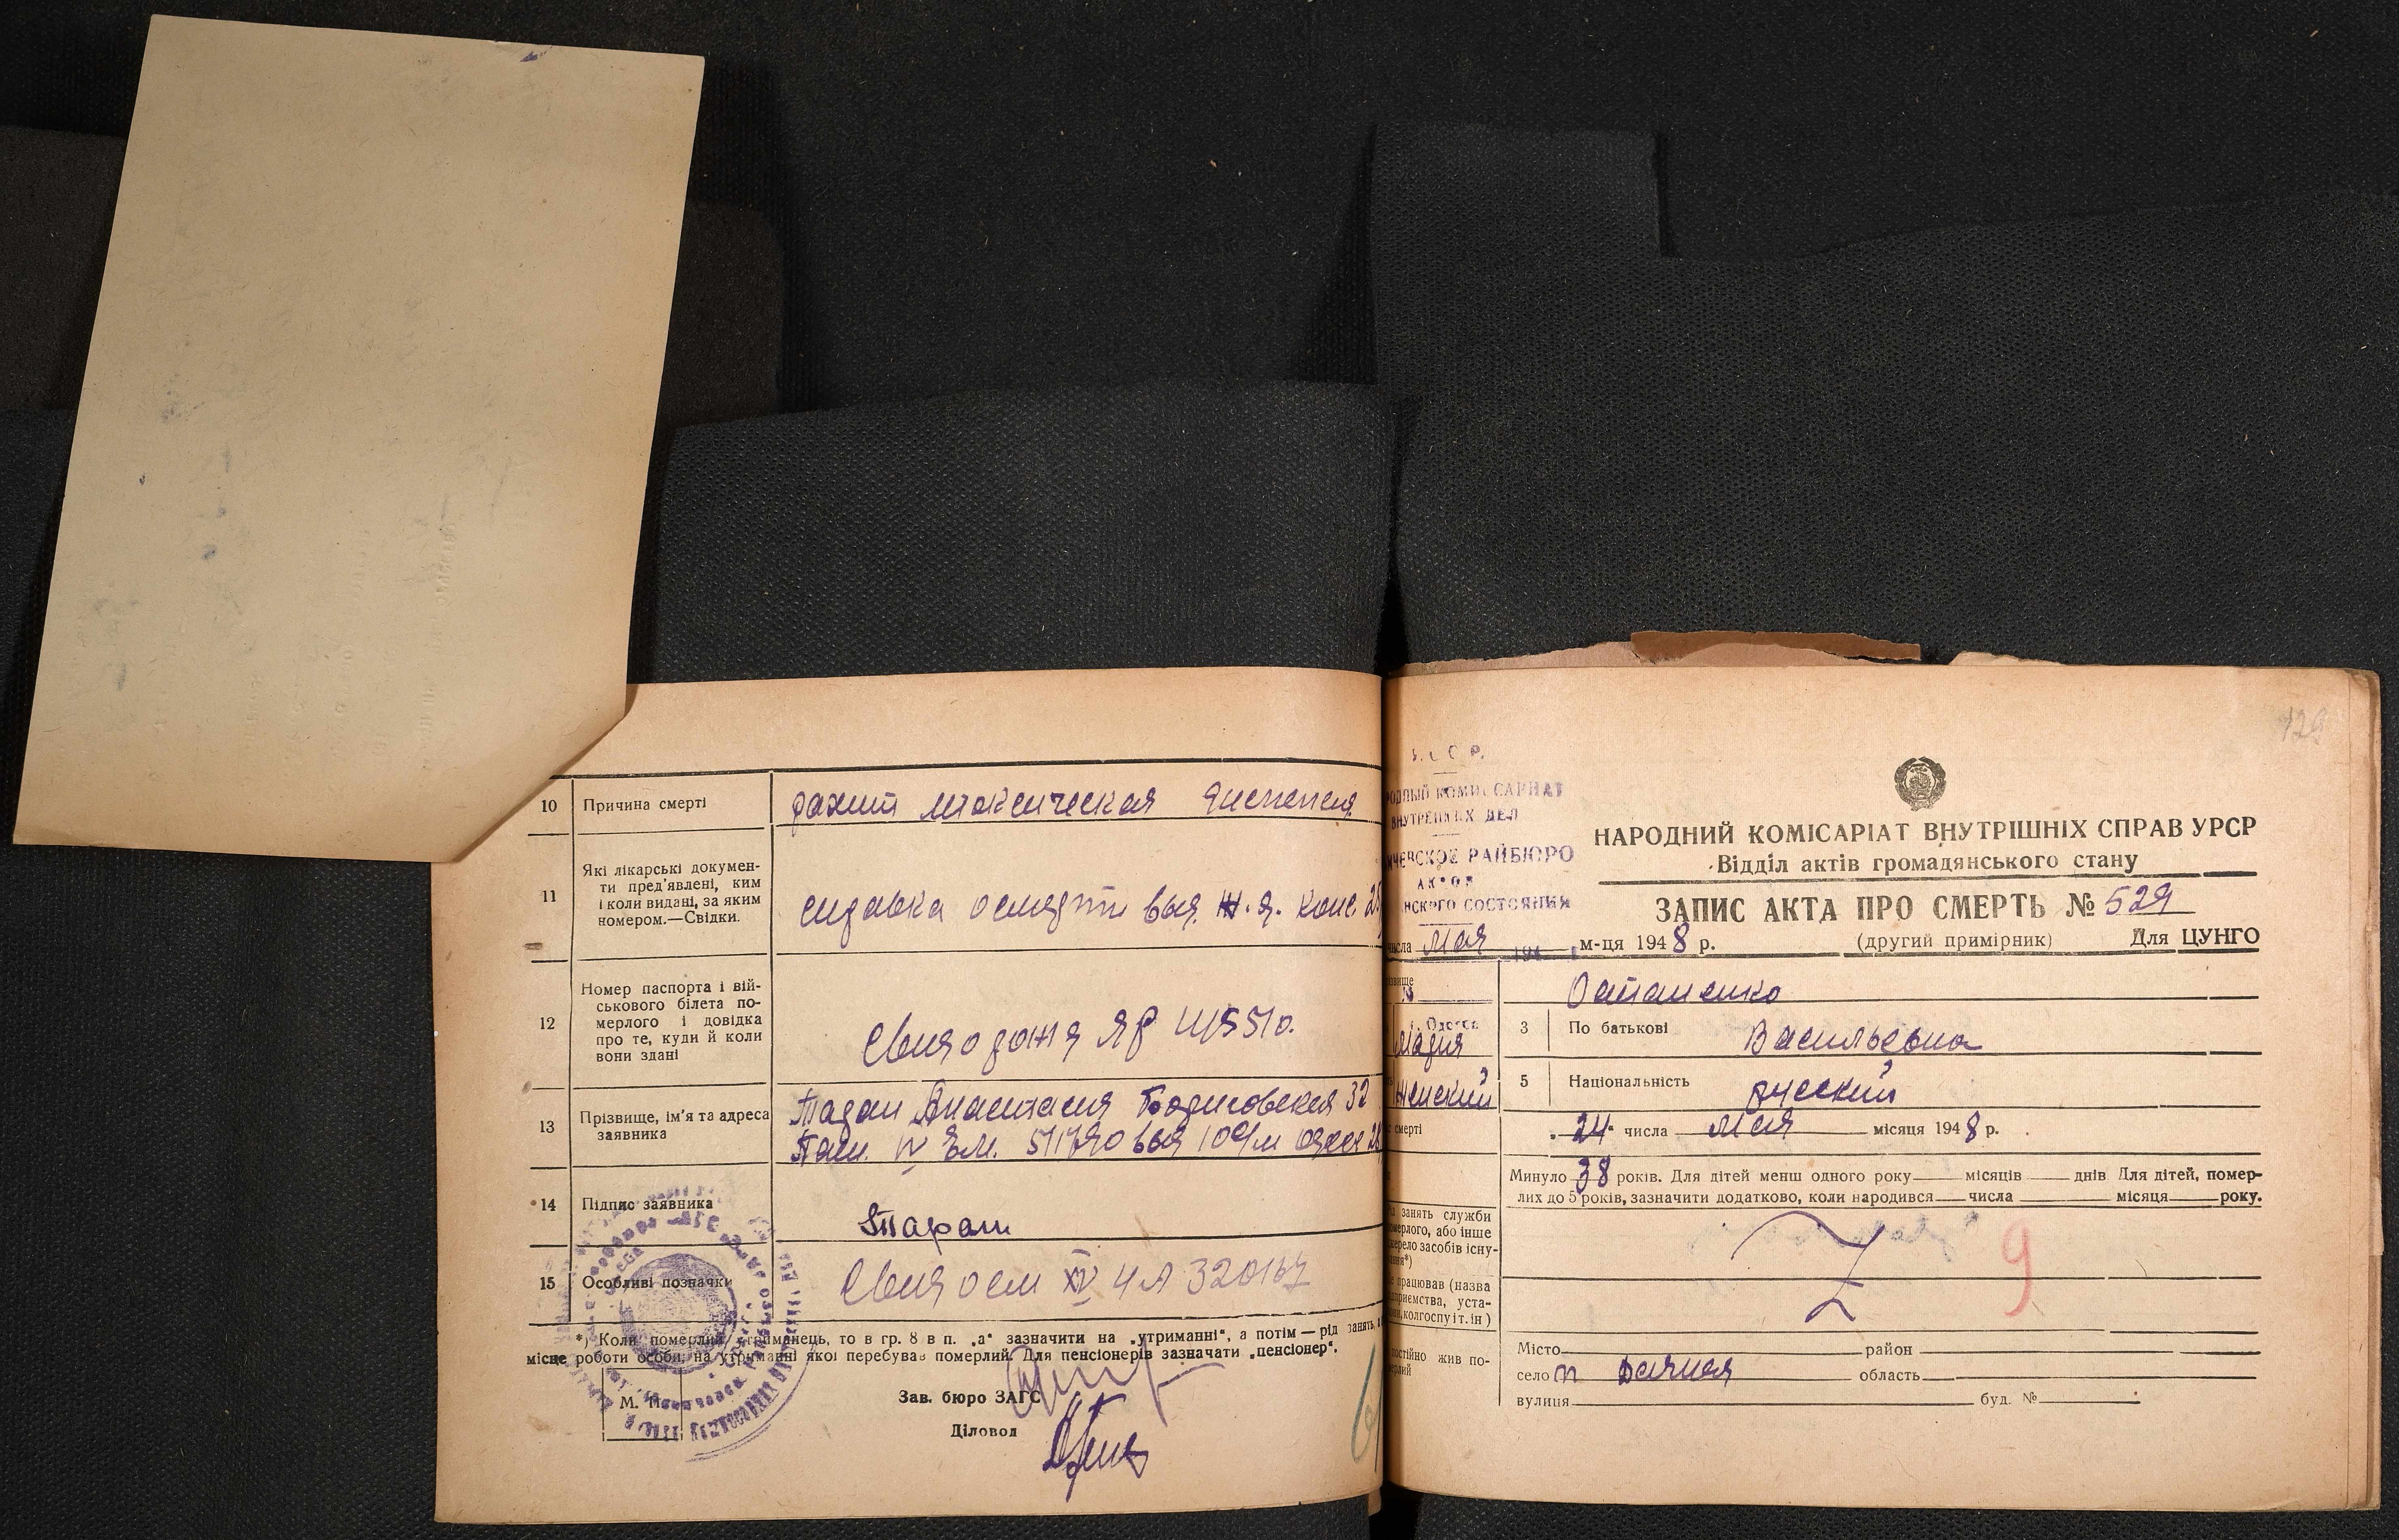 10 Причина смерти рахит токсическая диспепсия
11 Які лікарські докумен-
ти пред'явлені, ким
і коли видані, за яким
номером.—Свідки.
справка о смерти выд. Ж.Д. конс. 25
12 Номер паспорта і вій-
ськового білета по-
мерлого і довідка
про те, куди й коли
вони здані
Свид о рожд ЯР
13 Прізвище, ім'я та адреса
заявника
Таран Анастасия Борисовская 32
Пасп. IV выд 10 о/м
14 Підпис заявника Таран
15 Особливі позначки Свид о см XV ЧЛ 320167
*) Коли померлий утриманець, то в гр. 8 в п. „а" зазначити на „утриманні", а потім — рід занять,
місце роботи особи, на утриманні якої перебував померлий. Для пенсіонерів зазначати „пенсіонер".
М. П.
Зав. бюро ЗАГС
Діловод
129
НАРОДНИЙ КОМІСАРІАТ ВНУТРІШНІХ СПРАВ УРСР
Відділ актів громадянського стану
ЗАПИС АКТА ПРО СМЕРТЬ № 529
числа мая м-ця 1948 р. (другий примірник) Для ЦУНГО
РОДНЫЙ КОМИССАРИАТ
ВНУТРЕННИХ ДЕЛ
ЧЕВСКОЕ РАЙБЮРО
АКТОВ
НСКОГО СОСТОЯНИЯ
194
г. Одесса
ізвище Остапенко
Мария 3 По батькові Васильевна
женский 5 Національність русский
смерті 24 числа мая місяця 1948 р.
Минуло 38 років. Для дітей менш одного року місяців днів Для дітей, помер-
лих до 5 років, зазначити додатково, коли народився числа місяця року.
ід занять служби
мерлого, або інше
жерело засобів існу-
ання*)
9
е працював (назва
приємства, уста-
ни, колгоспу і т. ін)
постійно жив по-
мерлий
Місто район
село п Дачная область
вулиця буд. №